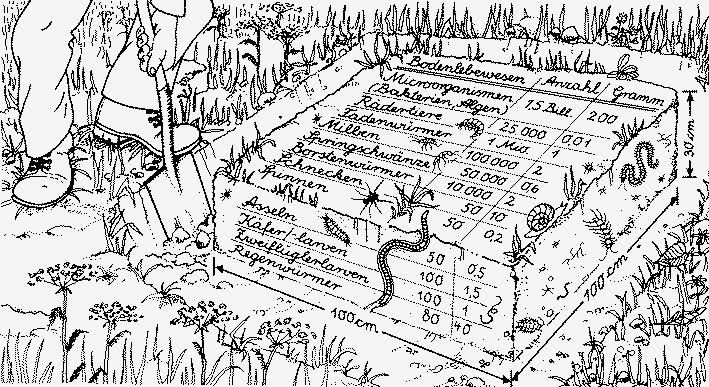 Bodenlebewesen Anzahl Gramm
Microorganismen
(Bakterien, Algen) 1.5 Bill. 200
Rädertiere 25 000 0,01
Fadenwürmer 1 Mio. 1
Milben 100 000 2
Springschwänze 50 000 0,6
Borstenwürmer 10 000 2
Schnecken 50 10
Spinnen 50 0,2
Asseln 50 0,5
Käfer/-larven 100 1,5
Zweiflüglerlarven 100 1
Regenwürmer 80 40
30 cm
100 cm
100 cm